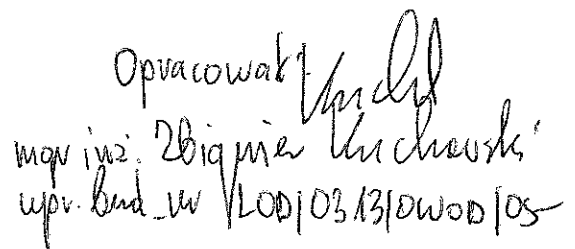 Opracował:
mgr inż. Zbigniew Kuchowski
upr. bud. nr LOD/0313/OWOD/05